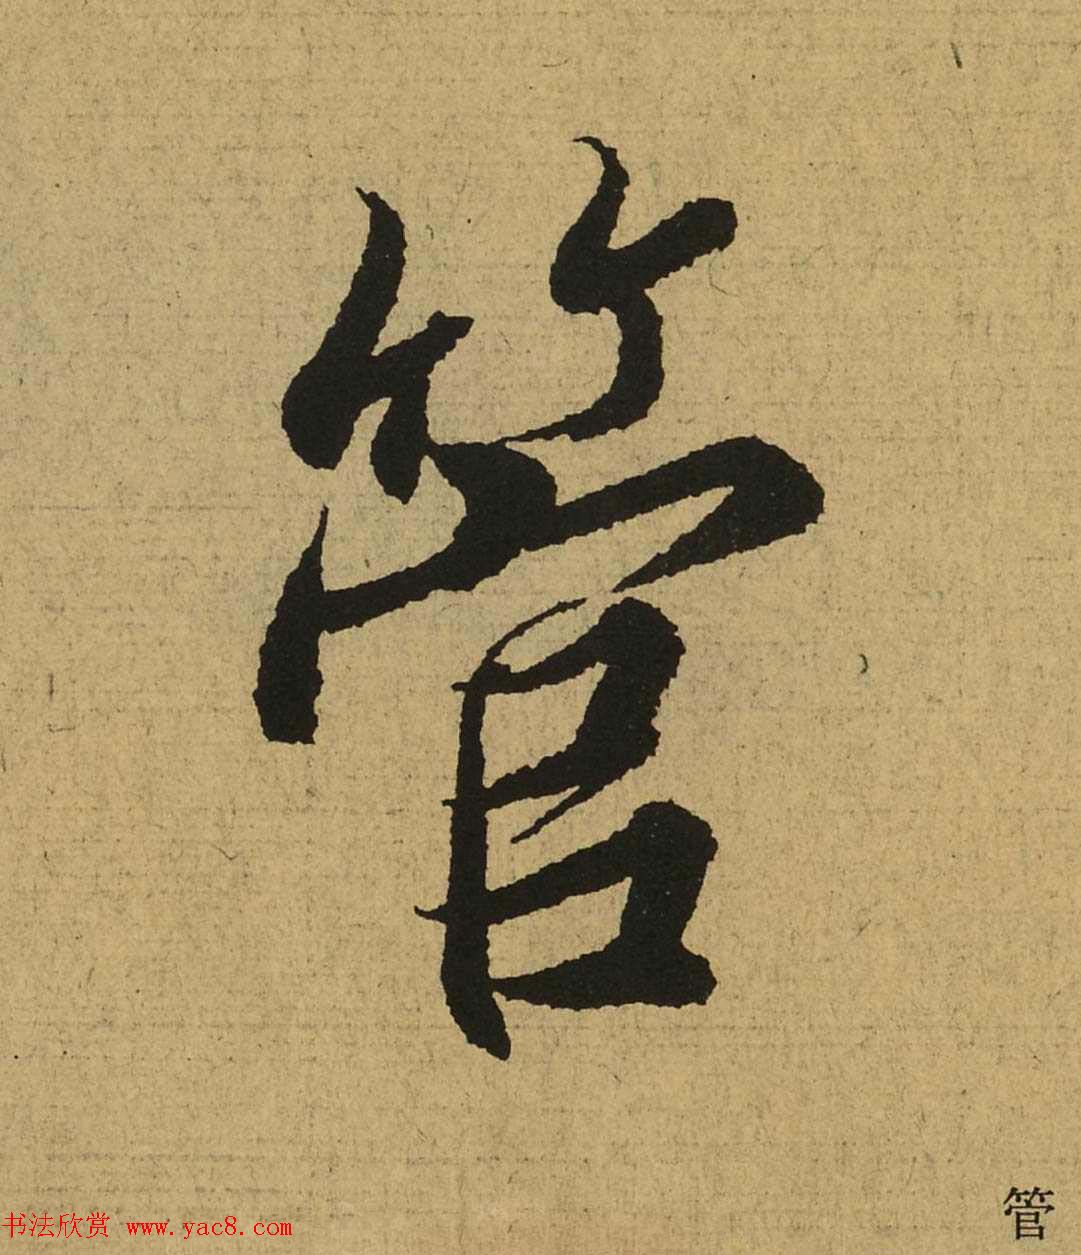 管
管
书法欣赏 www.yac8.com